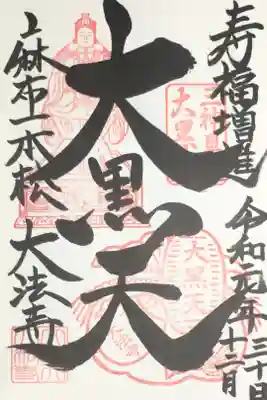 寿福増進
令和元年十二月
三十日
大黒天
麻布一本松 大法寺
大黒天